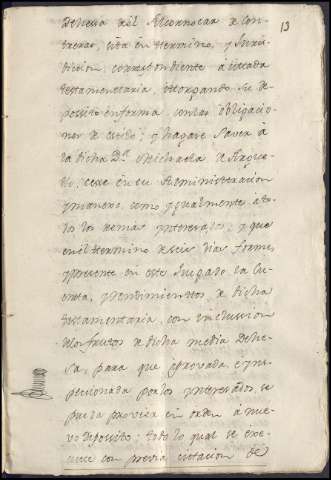 13
Dehesa del Alcornocar de Con-
treras, sita en termino, y Juris-
diccion, correspondiente á citada
testamentaria, otorgando su de-
posito en forma, con las obligacio-
nes de estilo; y hagase saver á
la dicha Dª Michaela de
cese en su Administracion
y manexo, como ygualmente a to-
dos los demas ynteresados; y que
en el termino de seis dias forme,
y presente en este Juzgado la Cu-
enta, y rendimientos, de dicha
testamentaria, con inclusion
de los frutos de dicha media Dehe-
sa, para que aprovada, e yns-
peccionada por los ynteresados, se
pueda proveer en orden á nue-
vo Deposito; todo lo qual se exe-
cute con previa citacion de